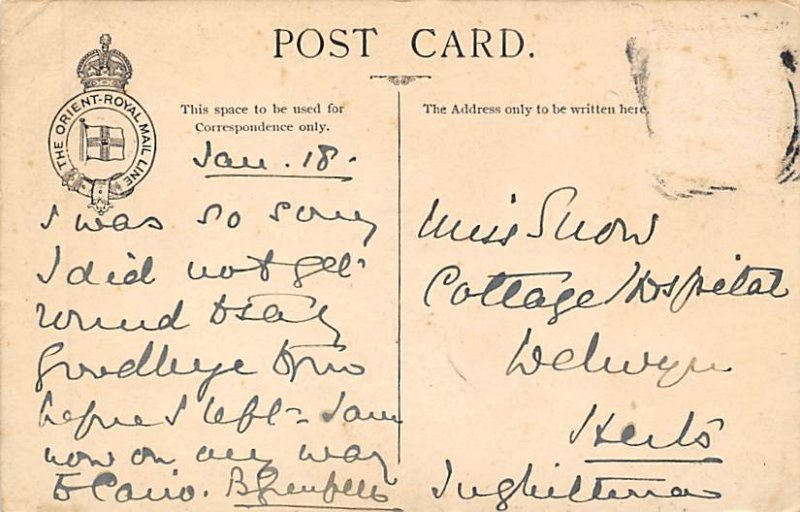 POST CARD.
THE ORIENT-ROYAL MAIL LINE
This space to be used for
Correspondence only.
The Address only to be written here.
Jan. 18.
I was so sorry
I did not get
round to say
goodbye to you
before I left - I am
now on my way
to Cairo. B Grenfell
Miss Snow
Cottage Hospital
Welwyn
Herts
Inghilterra